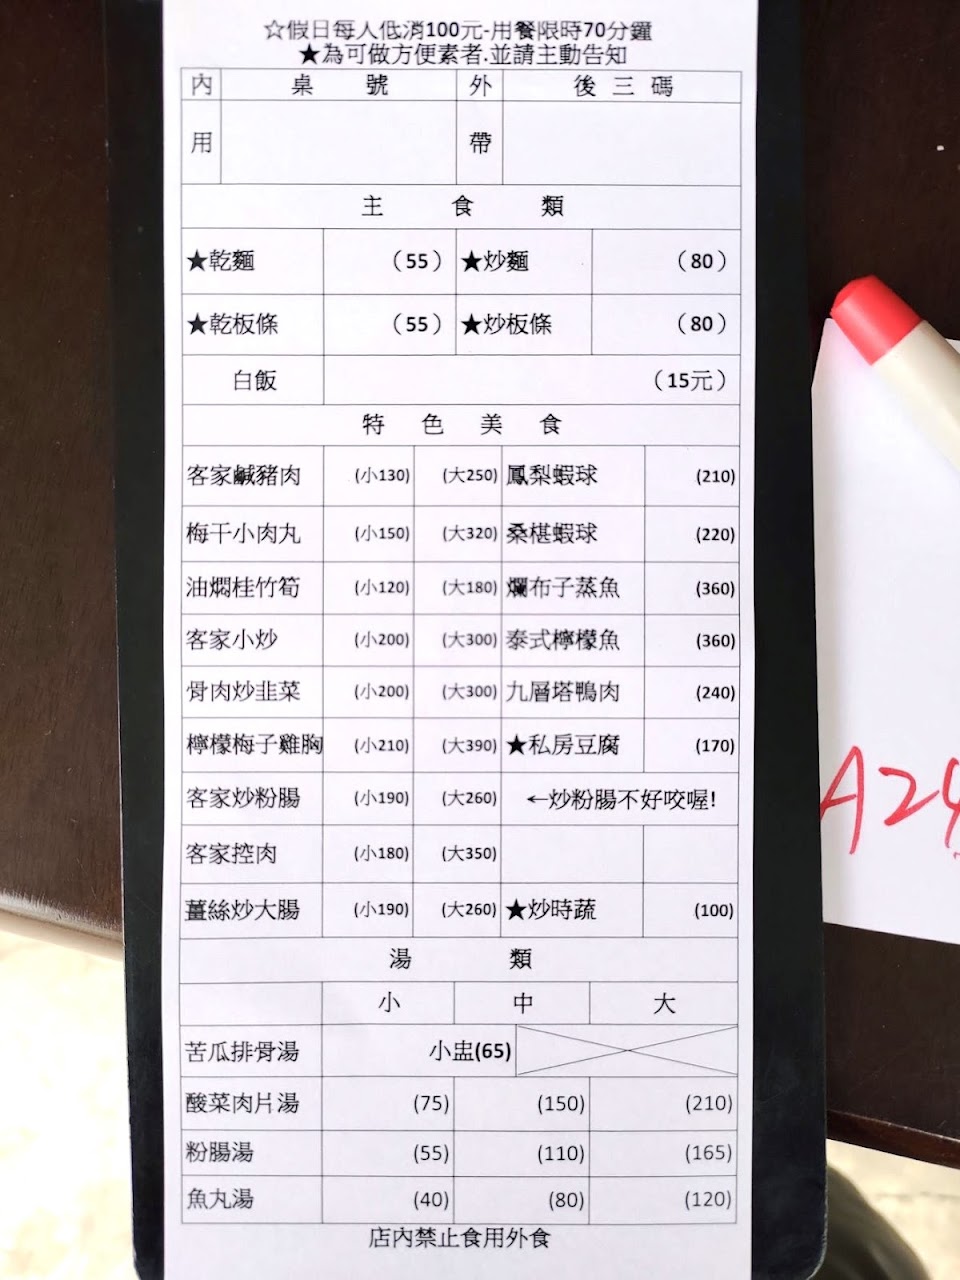 ☆假日每人低消100元-用餐限時70分鐘
★為可做方便素者.並請主動告知
內用 桌號 外帶 後三碼
主食類
★乾麵 （55） ★炒麵 （80）
★乾板條 （55） ★炒板條 （80）
白飯 （15元）
特色美食
客家鹹豬肉 (小130) (大250) 鳳梨蝦球 (210)
梅干小肉丸 (小150) (大320) 桑椹蝦球 (220)
油燜桂竹筍 (小120) (大180) 爛布子蒸魚 (360)
客家小炒 (小200) (大300) 泰式檸檬魚 (360)
骨肉炒韭菜 (小200) (大300) 九層塔鴨肉 (240)
檸檬梅子雞胸 (小210) (大390) ★私房豆腐 (170)
客家炒粉腸 (小190) (大260) ←炒粉腸不好咬喔!
客家控肉 (小180) (大350)
薑絲炒大腸 (小190) (大260) ★炒時蔬 (100)
湯類
小 中 大
苦瓜排骨湯 小盅(65)
酸菜肉片湯 (75) (150) (210)
粉腸湯 (55) (110) (165)
魚丸湯 (40) (80) (120)
店內禁止食用外食
A24